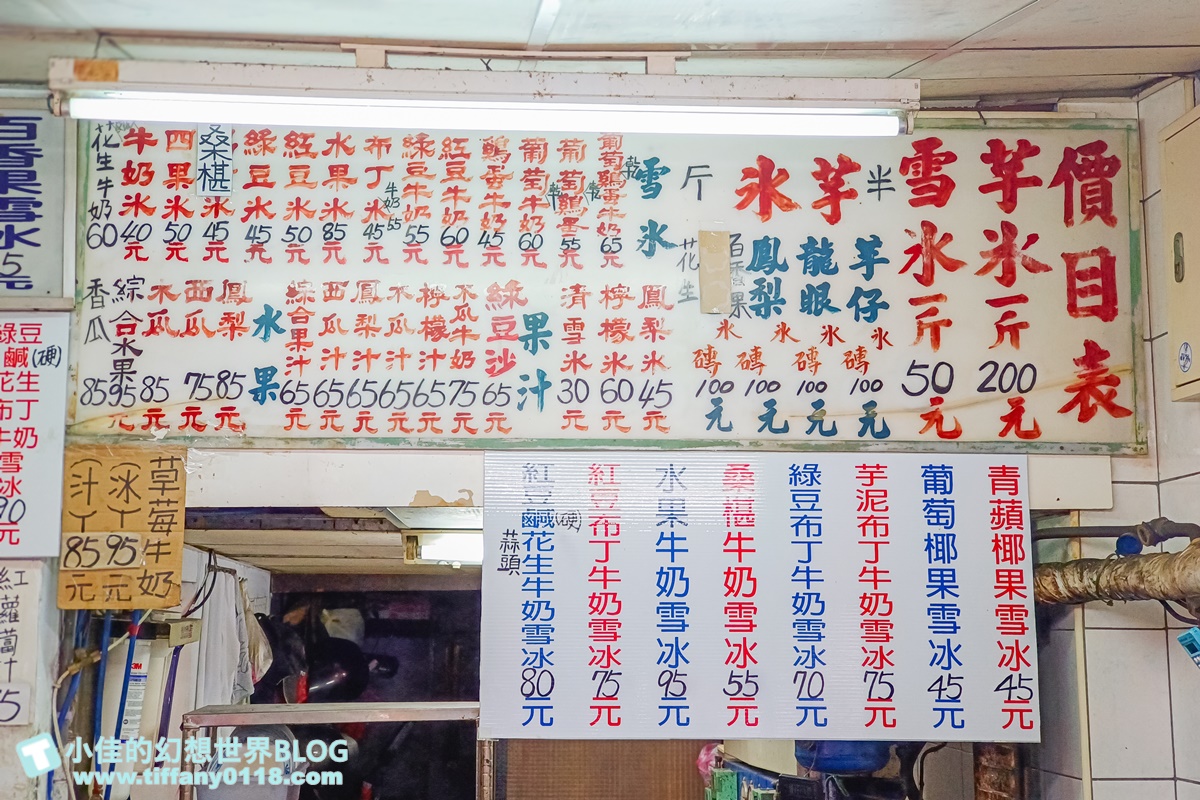 價目表
芋氷一斤200元
雪氷一斤50元
半
芋氷
斤
芋仔氷磚100元
龍眼氷磚100元
鳳梨氷磚100元
百香果氷磚100元
花生
雪氷
葡萄乾鷄蛋牛奶65元
葡萄乾鷄蛋55元
葡萄乾牛奶60元
鷄蛋牛奶45元
紅豆牛奶60元
綠豆牛奶55元
布丁氷45元
牛奶55
水果氷85元
紅豆氷50元
綠豆氷45元
桑椹氷45元
四果氷50元
牛奶氷40元
花生牛奶60
鳳梨氷45元
檸檬氷60元
清雪氷30元
果汁
綠豆沙65元
木瓜牛奶75元
檸檬汁65元
木瓜汁65元
鳳梨汁65元
西瓜汁65元
綜合果汁65元
水果
鳳梨85元
西瓜75元
木瓜85元
綜合水果95元
香瓜85
青蘋椰果雪冰45元
葡萄椰果雪冰45元
芋泥布丁牛奶雪冰75元
綠豆布丁牛奶雪冰70元
桑椹牛奶雪冰55元
水果牛奶雪冰95元
紅豆布丁牛奶雪冰75元
紅豆鹹(硬)花生牛奶雪冰80元
蒜頭
百香果雪冰
綠豆
鹹(硬)
花生
布丁
牛奶
雪
冰
90
元
草莓牛奶
(冰)95元
(汁)85元
紅蘿蔔汁
小佳的幻想世界BLOG
www.tiffany0118.com